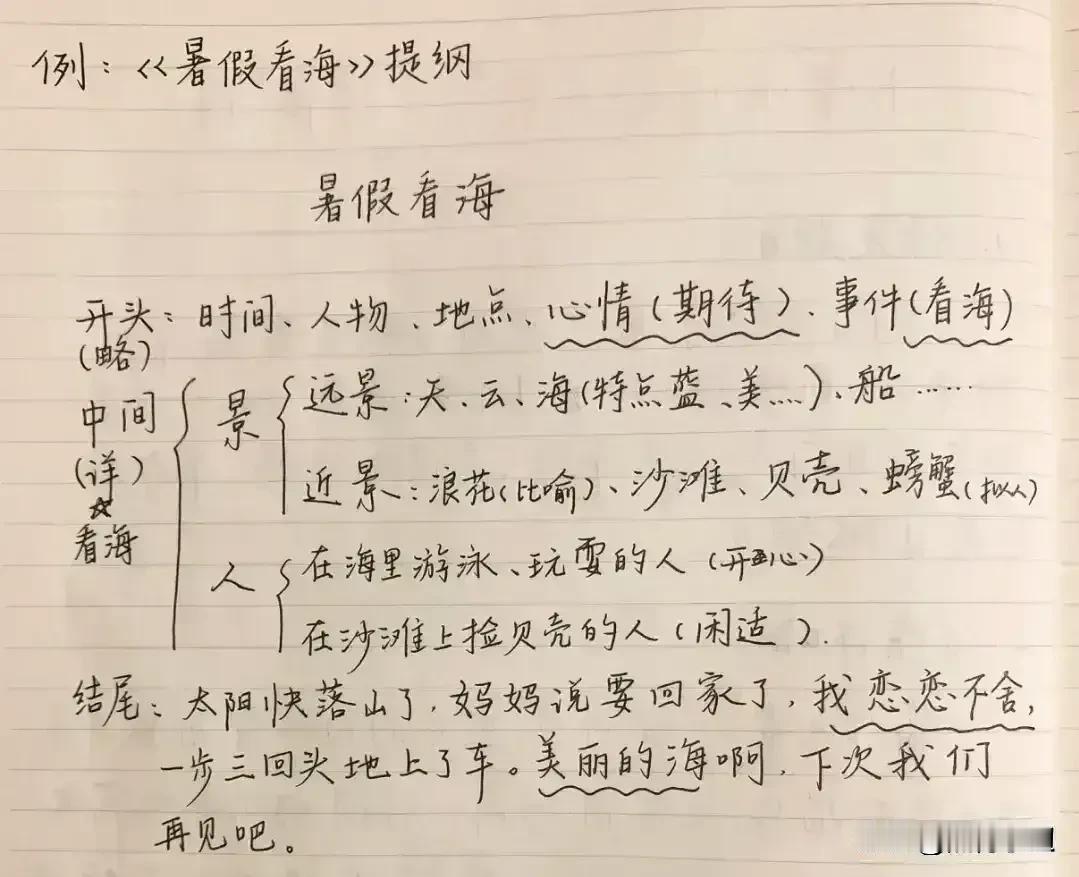 例：《暑假看海》提纲
暑假看海
开头：时间、人物、地点、心情(期待)、事件(看海)
(略)
中间
(详)
☆
看海
景
远景：天、云、海(特点蓝、美……)、船……
近景：浪花(比喻)、沙滩、贝壳、螃蟹(拟人)
人
在海里游泳、玩耍的人(开心)
在沙滩上捡贝壳的人(闲适).
结尾：太阳快落山了，妈妈说要回家了，我恋恋不舍，
一步三回头地上了车。美丽的海啊，下次我们
再见吧。